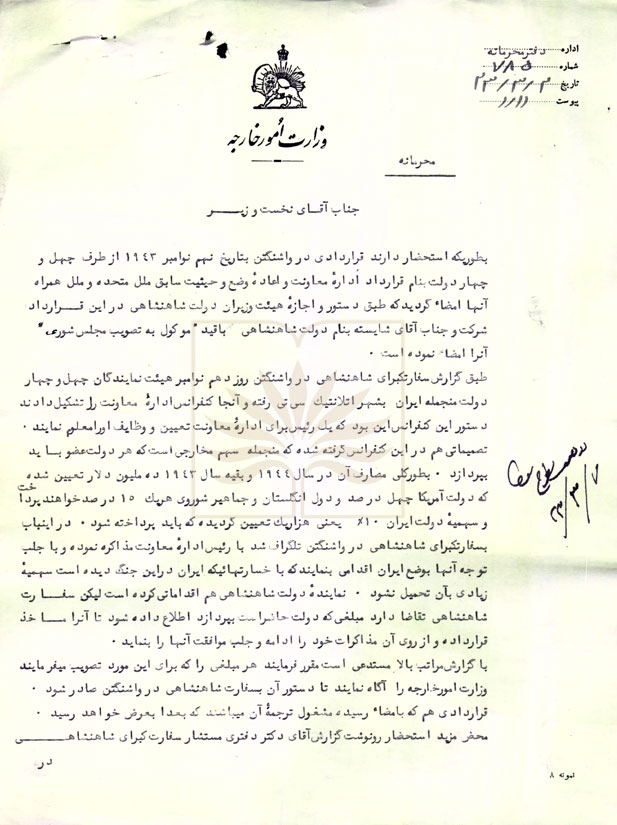 اداره دفتر محرمانه
شماره ۷۸۵
تاریخ ۲۳/۳/۳
پیوست
وزارت امور خارجه
محرمانه
جناب آقای نخست وزیر
بطوریکه استحضار دارند قراردادی در واشنگتن بتاریخ نهم نوامبر ۱۹۴۳ از طرف چهل و
چهار دولت بنام قرارداد ادارهٔ معاونت و اعادهٔ وضع و حیثیت سابق ملل متحده و ملل همراه
آنها امضاء گردید که طبق دستور و اجازهٔ هیئت وزیران دولت شاهنشاهی در این قرارداد
شرکت و جناب آقای شایسته بنام دولت شاهنشاهی باقید "موکول به تصویب مجلس شوری"
آنرا امضاء نموده است .
طبق گزارش سفارتکبرای شاهنشاهی در واشنگتن روز دهم نوامبر هیئت نمایندگان چهل و چهار
دولت منجمله ایران بشهر اتلانتیک سی تی رفته و آنجا کنفرانس ادارهٔ معاونت را تشکیل دادند
دستور این کنفرانس این بود که یک رئیس برای ادارهٔ معاونت تعیین و وظایف اورا معلوم نمایند .
تصمیماتی هم در این کنفرانس گرفته شده که منجمله سهم مخارجی است که هر دولت عضو باید
بپردازد . بطورکلی مصارف آن در سال ۱۹۴۴ و بقیه سال ۱۹۴۳ ده ملیون دلار تعیین شده
که دولت آمریکا چهل در صد و دول انگلستان و جماهیر شوروی هریک ۱۵ در صد خواهند پرداخت
و سهمیهٔ دولت ایران ۱۰٪ یعنی هزاریک تعیین گردیده که باید پرداخته شود . در اینباب
بسفارتکبرای شاهنشاهی در واشنگتن تلگراف شد با رئیس ادارهٔ معاونت مذاکره نموده و با جلب
توجه آنها بوضع ایران اقدامی بنمایند که با خسارتهائیکه ایران در این جنگ دیده است سهمیهٔ
زیادی بآن تحمیل نشود . نمایندهٔ دولت شاهنشاهی هم اقداماتی کرده است لیکن سفارت
شاهنشاهی تقاضا دارد مبلغی که دولت حاضراست بپردازد اطلاع داده شود تا آنرا ماخذ
قرارداده و از روی آن مذاکرات خود را ادامه و جلب موافقت آنها را بنماید .
با گزارش مراتب بالا مستدعی است مقرر فرمایند هر مبلغی را که برای این مورد تصویب میفرمایند
وزارت امورخارجه را آگاه نمایند تا دستور آن بسفارت شاهنشاهی در واشنگتن صادر شود .
قراردادی هم که بامضاء رسیده مشغول ترجمهٔ آن میباشند که بعدا بعرض خواهد رسید .
محض مزید استحضار رونوشت گزارش آقای دکتر دفتری مستشار سفارت کبرای شاهنشاهی
در
۲۳/۳/۷
نمونه ۸